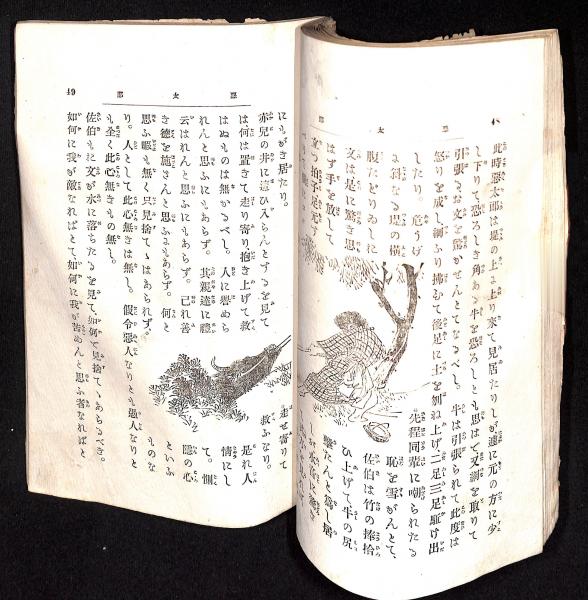 惡太郎
此時惡太郎は堤の上より來て見居たりしが遽に元の方に少
し下りて恐ろしき角ある牛を恐ろしとも思はで又綱を取りて
引張るお文を驚かせんとてなるべし。牛は引張られて此度は
怒りを成し綱ふり拂むて後足に土を刎ね上げ二足三足駈け出
したり。危うげ
な斜なる堤の横
腹たどりゐしに
文は是に驚き思
はず手を放して
立つ拍子足元す
先程同輩に嘲られたる
恥を雪がんとて、
佐伯は竹の棒拾
ひ上げて牛の尻
擊たんと爲し居
惡太郎
49
にもがき居たり。
赤兒の井に這ひ入らんとするを見て
は何は置きて走り寄り抱き上げて救
はぬものは無かるべし。人に譽めら
れんと思ふにもあらず。其親達に禮
云はれんと思ふにもあらず。己れ善
き德を施さんと思ふにもあらず。何と
思ふ暇も無く只見捨てゝはあられず。
走せ寄りて
救ふなり。
是れ人
情にし
て。惻
隱の心
といふ
ものな
り。人として此心無きは無し。假令惡人なりとも愚人なりと
も全く此心無きもの無し。
佐伯もお文が水に落ちたるを見て、如何で見捨てゝあらるべき。
如何に我が敵なればとて、如何に我が苦めんと思ふ者なればと